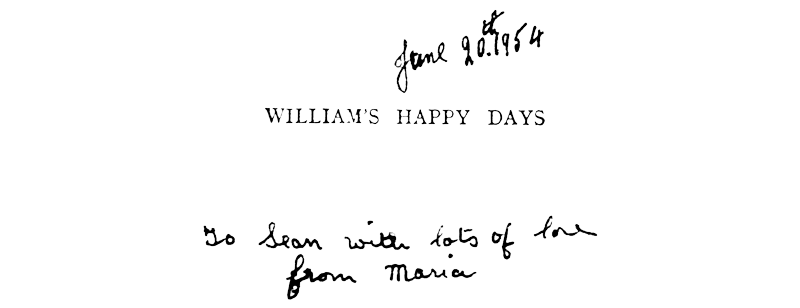 June 20.th 1954
WILLIAM'S HAPPY DAYS
To Sean with lots of love
from Maria